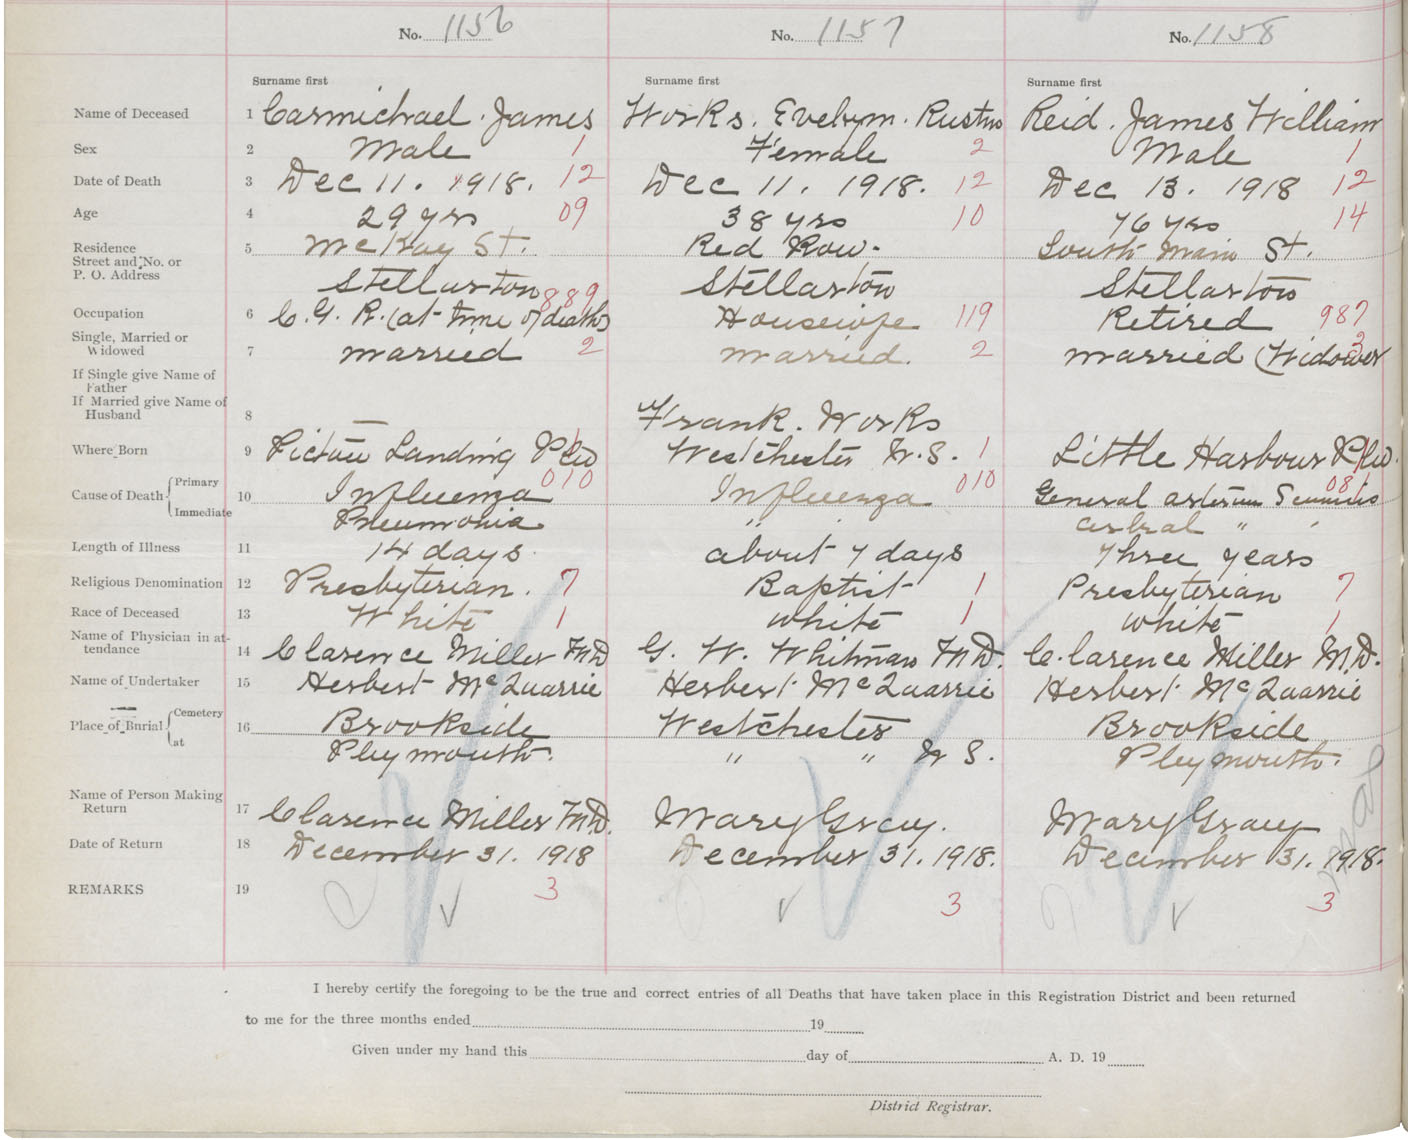 No. 1156 No. 1157 No. 1158
Surname first Surname first Surname first
Name of Deceased 1 Carmichael. James Works. Evelyn. Rustus Reid. James William
Sex 2 Male 1 Female 2 Male 1
Date of Death 3 Dec 11. 1918. 12 Dec 11. 1918. 12 Dec 13. 1918 12
Age 4 29 yrs 09 38 yrs 10 76 yrs 14
Residence 5 McKay St. Red Row. South Main St.
Street and No. or
P. O. Address Stellarton Stellarton Stellarton
889
Occupation 6 C. G. R. (at time of death) Housewife 119 Retired 987
Single, Married or
Widowed 7 married 2 married. 2 married (Widower 3
If Single give Name of
Father
If Married give Name of
Husband 8 — Frank. Works
Where Born 9 Pictou Landing P Co 1 Westchester N. S. 1 Little Harbour P Co. 1
010 010 081
Cause of Death Primary 10 Influenza Influenza General
Immediate Pneumonia " "
Length of Illness 11 14 days. about 7 days Three years
Religious Denomination 12 Presbyterian. 7 Baptist 1 Presbyterian 7
Race of Deceased 13 White 1 white 1 white 1
Name of Physician in at-
tendance 14 Clarence Miller M D G. W. Whitman M. D. Clarence Miller M. D.
Name of Undertaker 15 Herbert McQuarrie Herbert McQuarrie Herbert McQuarrie
Place of Burial Cemetery 16 Brookside Westchester Brookside
at Plymouth. " " N S. Plymouth.
Name of Person Making
Return 17 Clarence Miller M D. Mary Gray. Mary Gray
Date of Return 18 December 31. 1918 December 31. 1918. December 31. 1918.
REMARKS 19 3 3 3
I hereby certify the foregoing to be the true and correct entries of all Deaths that have taken place in this Registration District and been returned
to me for the three months ended 19
Given under my hand this day of A. D. 19
District Registrar.